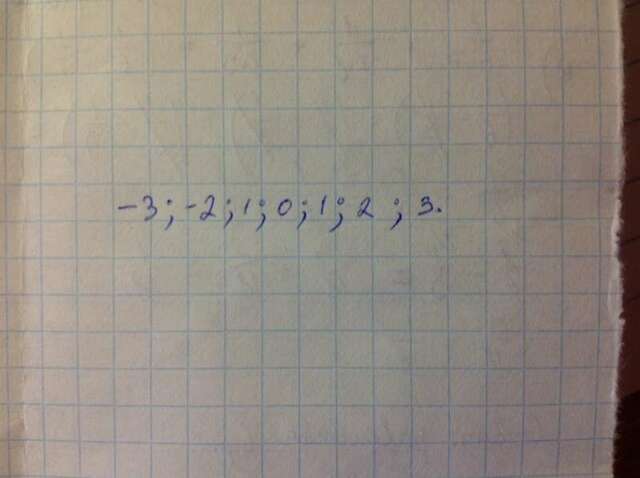 -3; -2; 1; 0; 1; 2; 3.